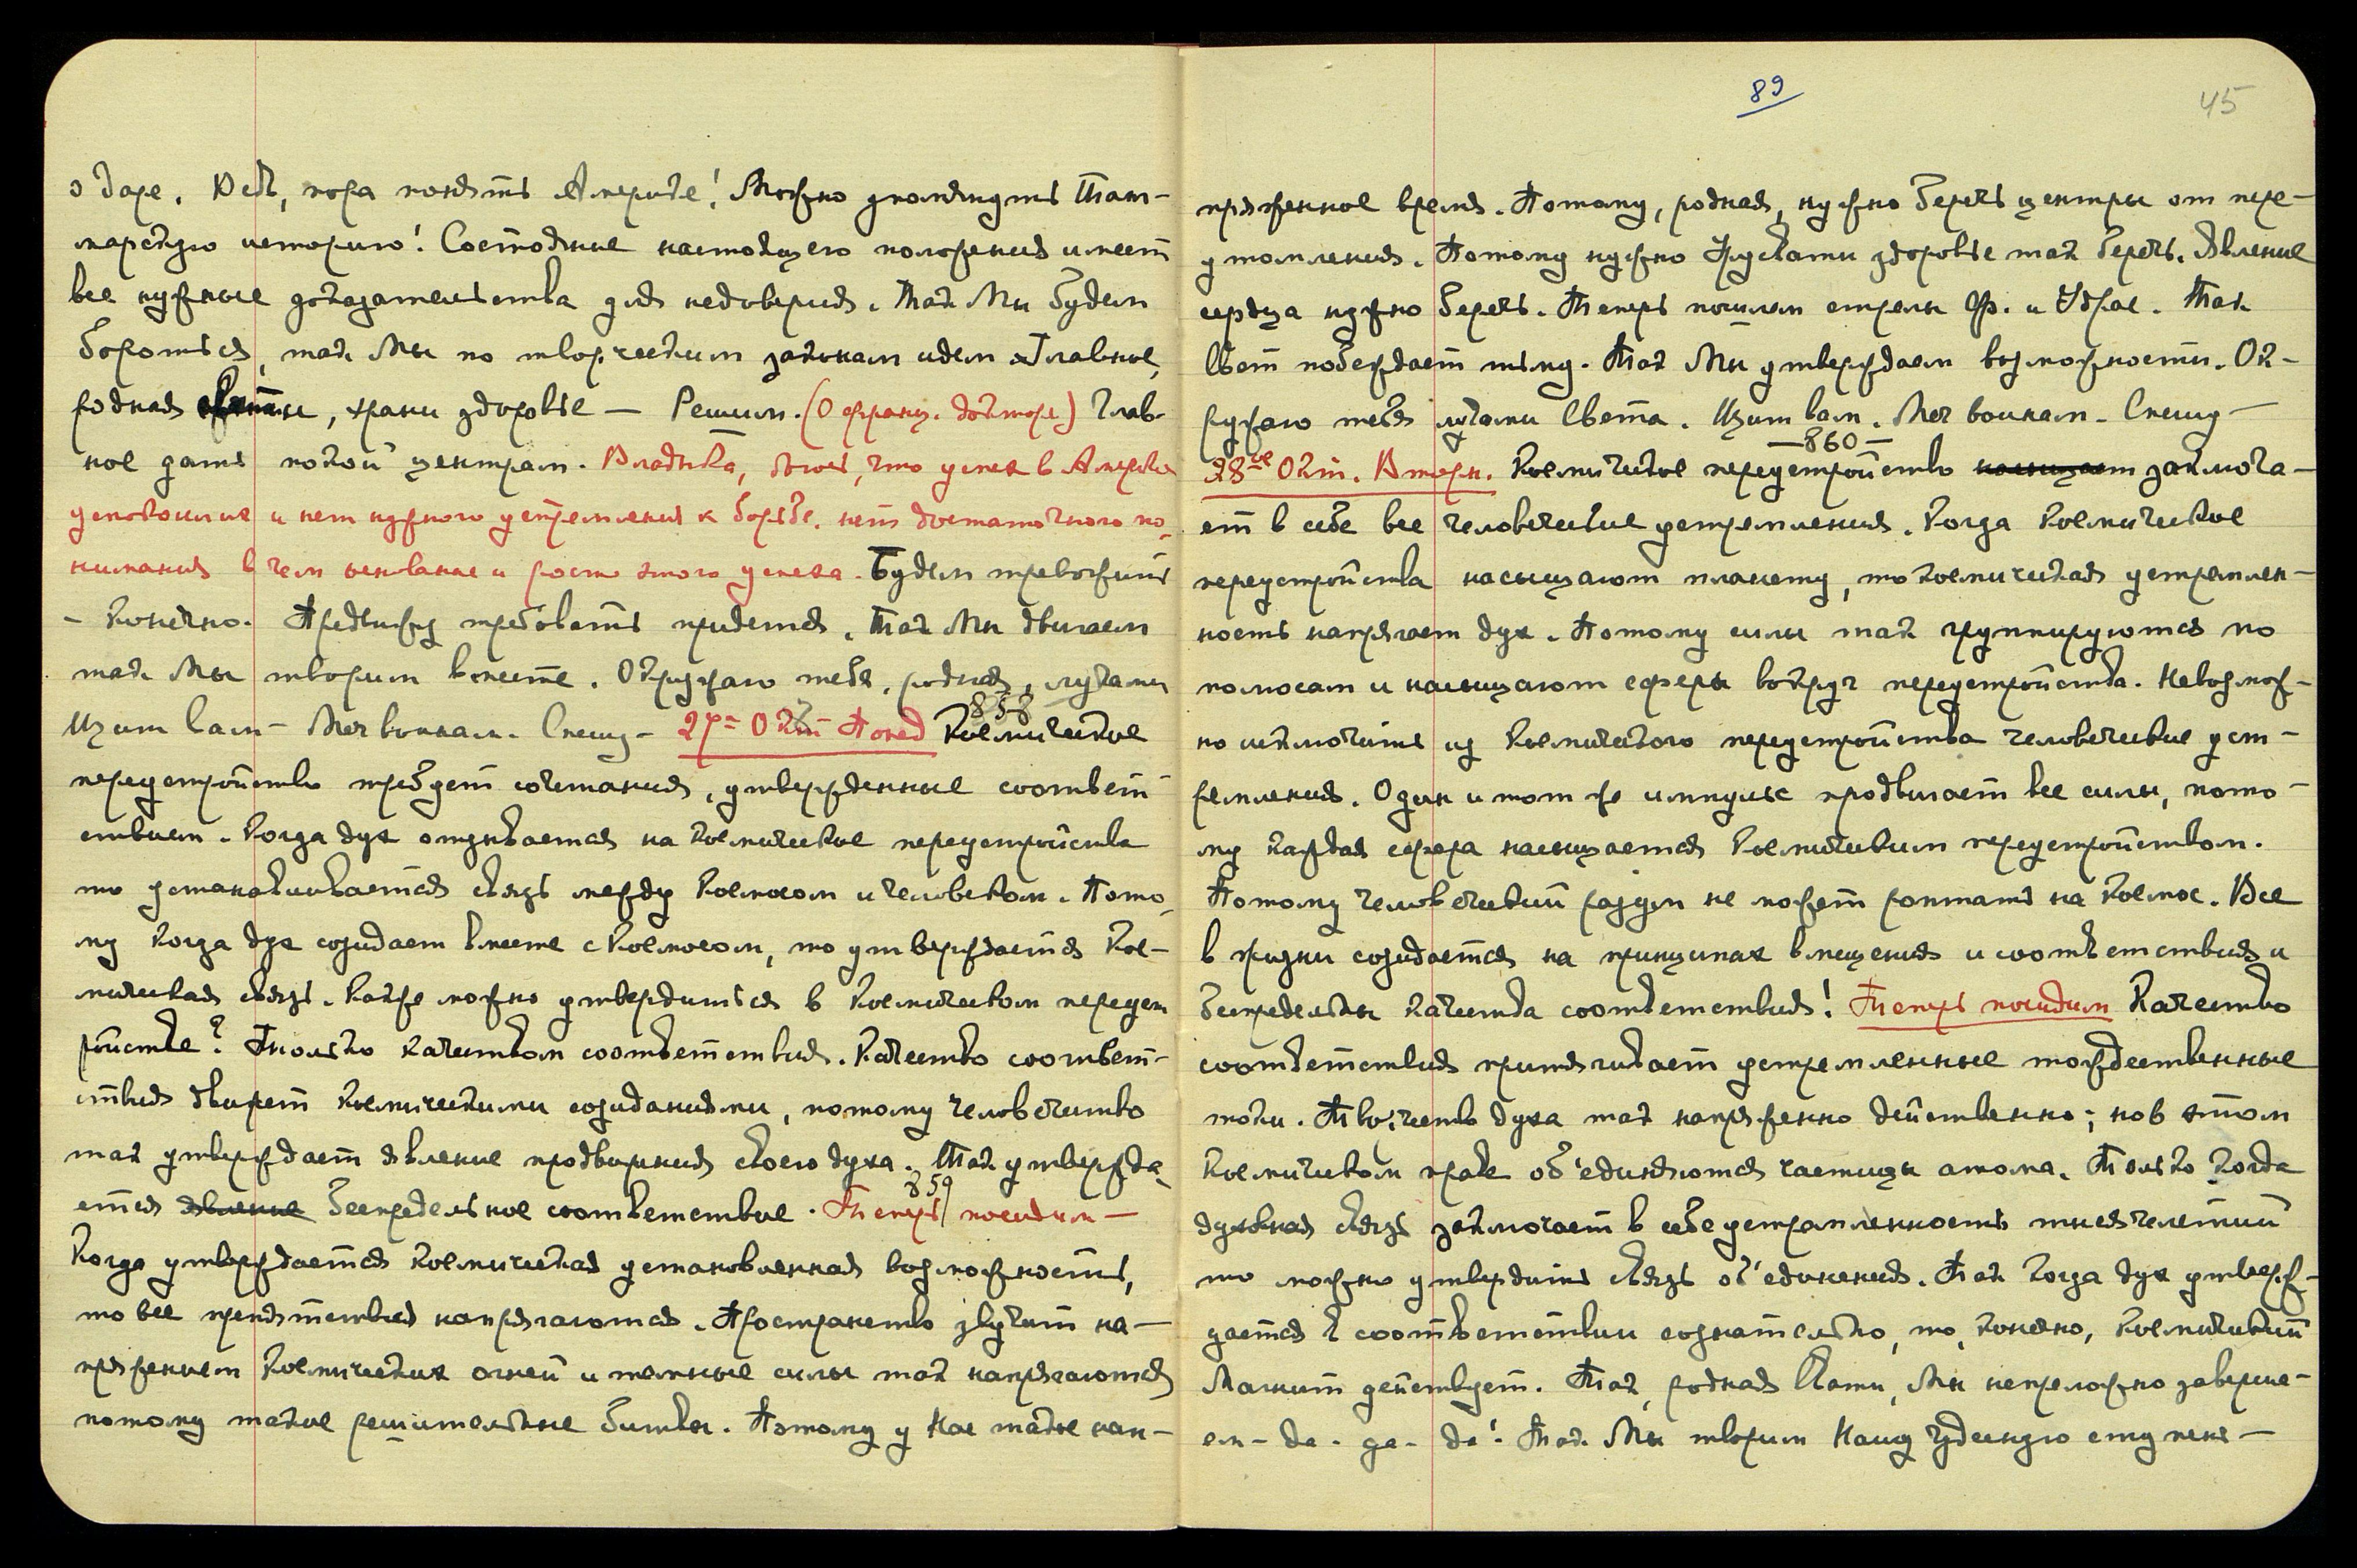 о даре. Ведь, пора понять Америке! Можно упомянуть Там-
марскую историю! Состояние настоящего положения имеет
все нужные доказательства для недоверия. Так Мы будем
бороться, так Мы по творческим законам идем Главное,
родная, храни здоровье — Решим. (О франц. докторе) Глав-
ное дать покой центрам. Владыка, боюсь, что успех в Америке
успокоил их и нет нужного устремления к борьбе. нет достаточного по-
нимания в чем основание и рост этого успеха. Будем тревожить
- Конечно. Предвижу требовать придется. Так Мы двигаем
так Мы творим вместе. Окружаю тебя, родная, лучами
Щит вам - Меч воинам. Спешу - 27= Окт Понед 858 Космическое
переустройство требует сочетания, утвержденные соответ-
ствием. Когда дух отзывается на космическое переустройство
то устанавливается связь между Космосом и человеком. Пото-
му когда дух созидает вместе с Космосом, то утверждается Кос-
мическая связь. Как же можно утвердиться в Космическом переуст
ройстве? Только качеством соответствия. Качество соответ-
ствия движет Космическими созиданиями, потому человечество
так утверждает явление продвижения своего духа. Так утвержда-
ется явление беспредельное соответствие. 859 Теперь посидим —
Когда утверждается космическая установленная возможность,
то все препятствия напрягаются. Пространство звучит на-
пряжением Космических огней и темные силы так напрягаются
потому такие решительные битвы. Потому у Нас такое нап-
89
45
пряженное время. Потому, родная, нужно беречь центры от пере-
утомления. Потому нужно Урусвати здоровье так беречь. Явление
сердца нужно беречь. Теперь пошлем стрелы Ф. и Удрае. Так
Свет побеждает тьму. Так Мы утверждаем возможности. Ок-
ружаю тебя лучами Света. Щит вам. Меч воинам. Спешу —
—860—
28ое Окт. Вторн. Космическое переустройство насыщает заключа-
ет в себе все человеческие устремления. Когда Космическое
переустройства насыщают планету, то космическая устремлен-
ность напрягает дух. Потому силы так группируются по
полюсам и насыщают сферы вокруг переустройства. Невозмож-
но исключить из Космического переустройства человеческие уст-
ремления. Один и тот же импульс продвигает все силы, пото-
му каждая сфера насыщается Космическим переустройством.
Потому человеческий разум не может роптать на Космос. Все
в жизни созидается на принципах вмещения и соответствия и
беспредельны качества соответствия! Теперь посидим Качество
соответствия притягивает устремленные тождественные
токи. Творчество духа так напряженно действенно; но в этом
Космическом праве об'единяются частицы атома. Только когда
духовная связь заключает в себе устремленность тысячелетий
то можно утвердить связь об'единения. Так когда дух утверж-
дается в соответствии сознательно, то, конечно, космический
Магнит действует. Так, родная Свати, Мы непреложно заверша-
ем - да - да - да! Так Мы творим Нашу чудесную ступень —